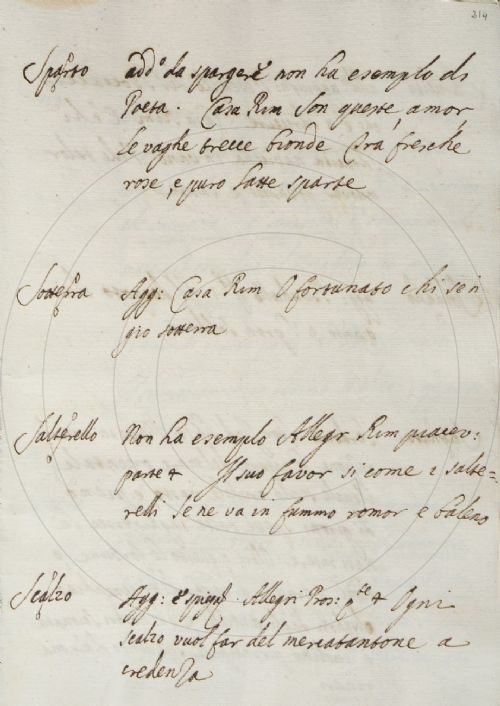 214
Sparto add.o da spargere non ha esemplo di
Poeta. Casa Rim Son queste, amor,
le vaghe trecce bionde Tra fresche
rose, e puro latte sparte
Sotterra Agg: Casa Rim O fortunato chi sen
gio sotterra
Salterello Non ha esemplo Allegr Rim piacev:
parte Il suo favor si come i salte=
relli Se ne va in fummo romor e baleno
Scalzo Agg: Allegri Pros: Ogni
scalzo vuol far del mercatantone a
credenza